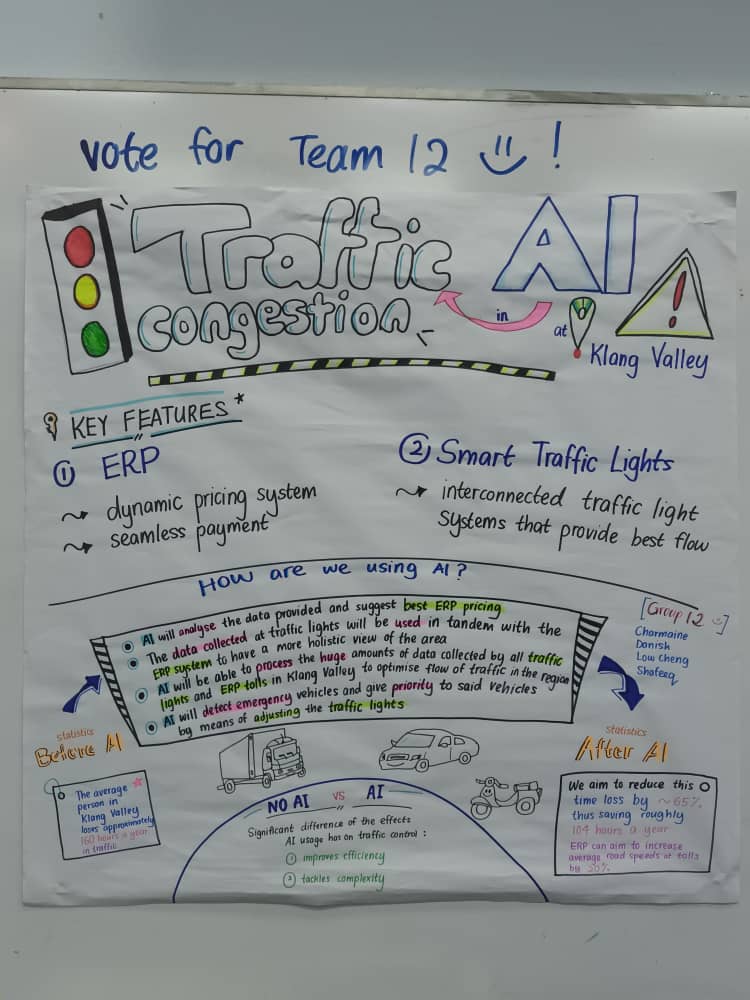 vote for Team 12 !
Traffic
congestion
in
AI
at
Klang Valley
KEY FEATURES*
1 ERP
dynamic pricing system
seamless payment
2 Smart Traffic Lights
interconnected traffic light
systems that provide best flow
How are we using AI?
AI will analyse the data provided and suggest best ERP pricing
The data collected at traffic lights will be used in tandem with the
ERP system to have a more holistic view of the area
AI will be able to process the huge amounts of data collected by all traffic
lights and ERP tolls in Klang Valley to optimise flow of traffic in the region
AI will detect emergency vehicles and give priority to said vehicles
by means of adjusting the traffic lights
[Group 12]
Charmaine
Danish
Low Cheng
Shafeeq
statistics
Before AI
The average
person in
Klang Valley
loses approximately
160 hours a year
in traffic
NO AI vs AI
Significant difference of the effects
AI usage has on traffic control :
1 improves efficiency
2 tackles complexity
statistics
After AI
We aim to reduce this
time loss by ~65%,
thus saving roughly
104 hours a year
ERP can aim to increase
average road speeds at tolls
by 30%